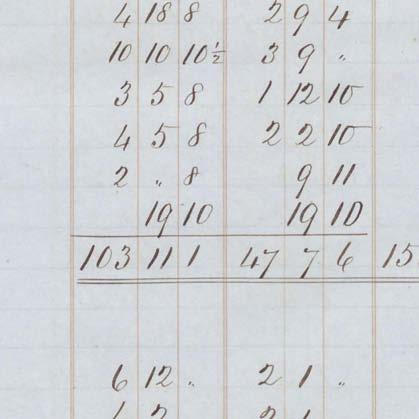 4 18 8 2 9 4
10 10 10½ 3 9 "
3 5 8 1 12 10
4 5 8 2 2 10
2 " 8 9 11
19 10 19 10
103 11 1 47 7 6 15
6 12 " 2 1 "